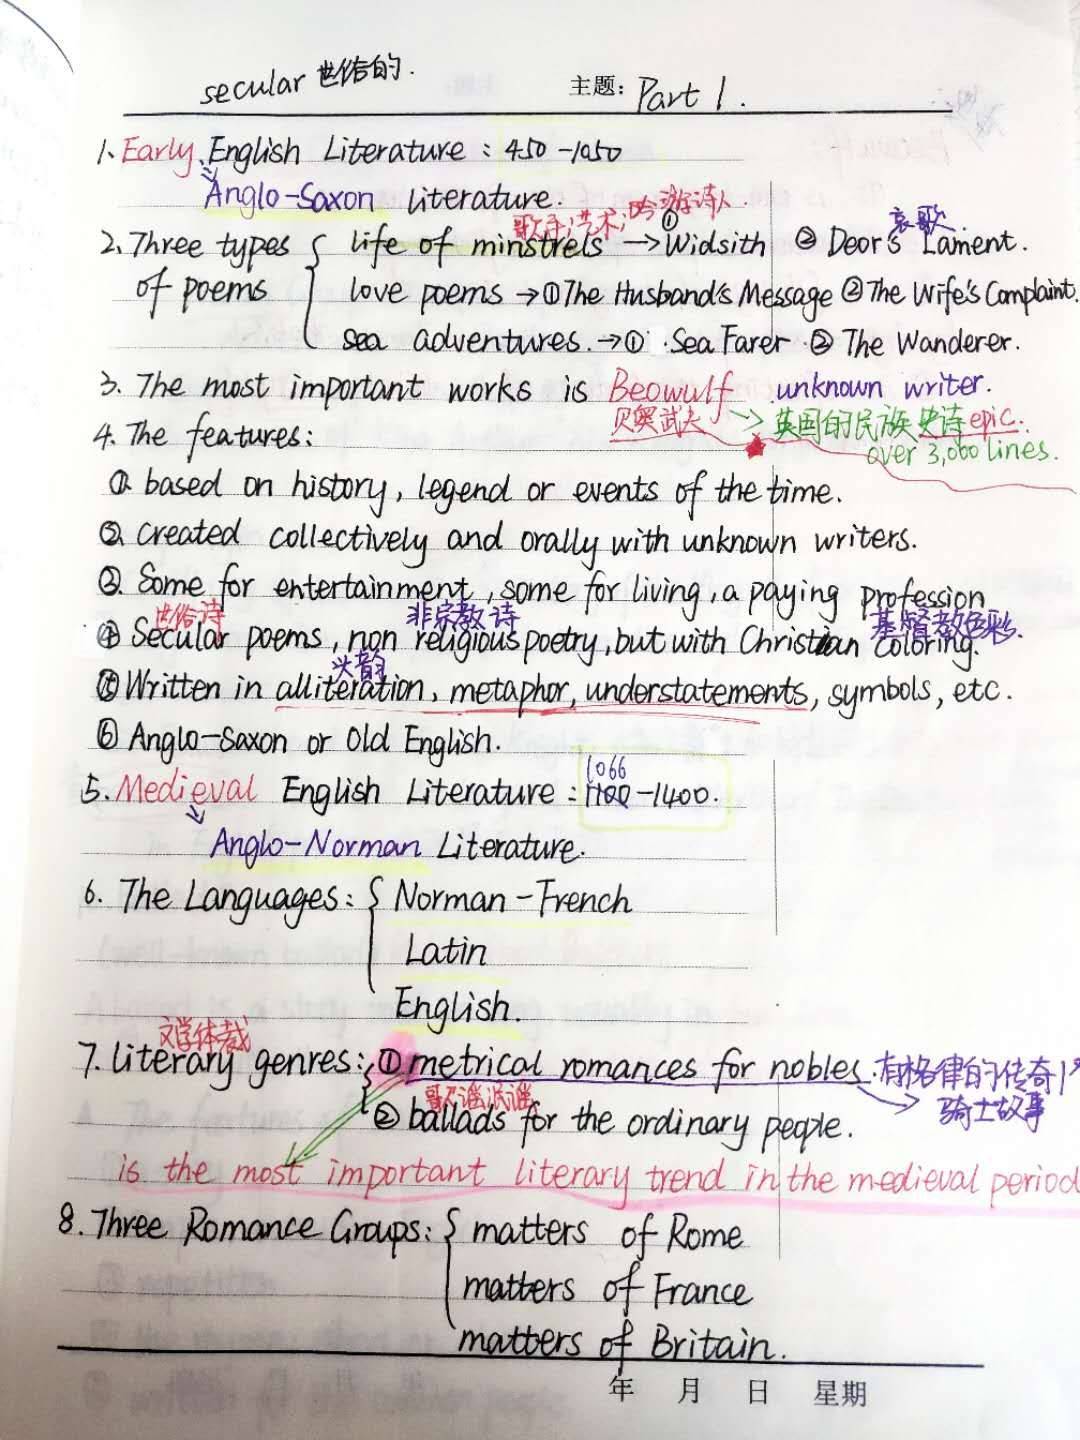 secular 世俗的.
主题: Part 1.
1. Early English Literature : 450-1050
Anglo-Saxon literature.
歌手;艺术; 吟游诗人
哀歌
2. Three types { life of minstrels → ① Widsith ② Deor's Lament.
of poems love poems → ① The Husband's Message ② The Wife's Complaint.
sea adventures. → ① Sea Farer ② The Wanderer.
3. The most important works is Beowulf unknown writer.
贝奥武夫 → 英国的民族史诗 epic.
over 3,000 lines.
4. The features:
① based on history, legend or events of the time.
② created collectively and orally with unknown writers.
③ Some for entertainment, some for living, a paying profession
世俗诗 非宗教诗 基督教色彩.
④ Secular poems, non religious poetry, but with Christian coloring.
头韵
⑤ Written in alliteration, metaphor, understatements, symbols, etc.
⑥ Anglo-Saxon or Old English.
1066
5. Medieval English Literature : 1100-1400.
Anglo-Norman Literature.
6. The Languages: { Norman-French
Latin
English.
文学体裁
7. literary genres: { ① metrical romances for nobles. 有格律的传奇
歌谣;民谣 → 骑士故事
② ballads for the ordinary people.
is the most important literary trend in the medieval period
8. Three Romance Groups: { matters of Rome
matters of France
matters of Britain.
年 月 日 星期